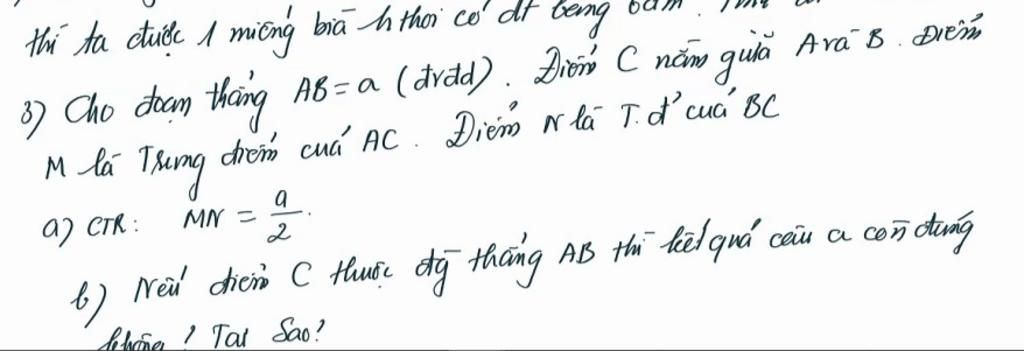 thì ta được 1 miếng bìa h thoi có dt bằng
3) Cho đoạn thẳng AB = a (đvđd). Điểm C nằm giữa A và B. Điểm
M là Trung điểm của AC. Điểm N là T.đ' của BC
a) CTR: MN = a/2.
b) Nếu điểm C thuộc đg thẳng AB thì kết quả câu a còn đúng
không? Tại Sao?